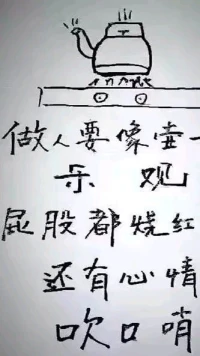 做人要像壶一
乐 观
屁股都烧红
还有心情
吹口哨